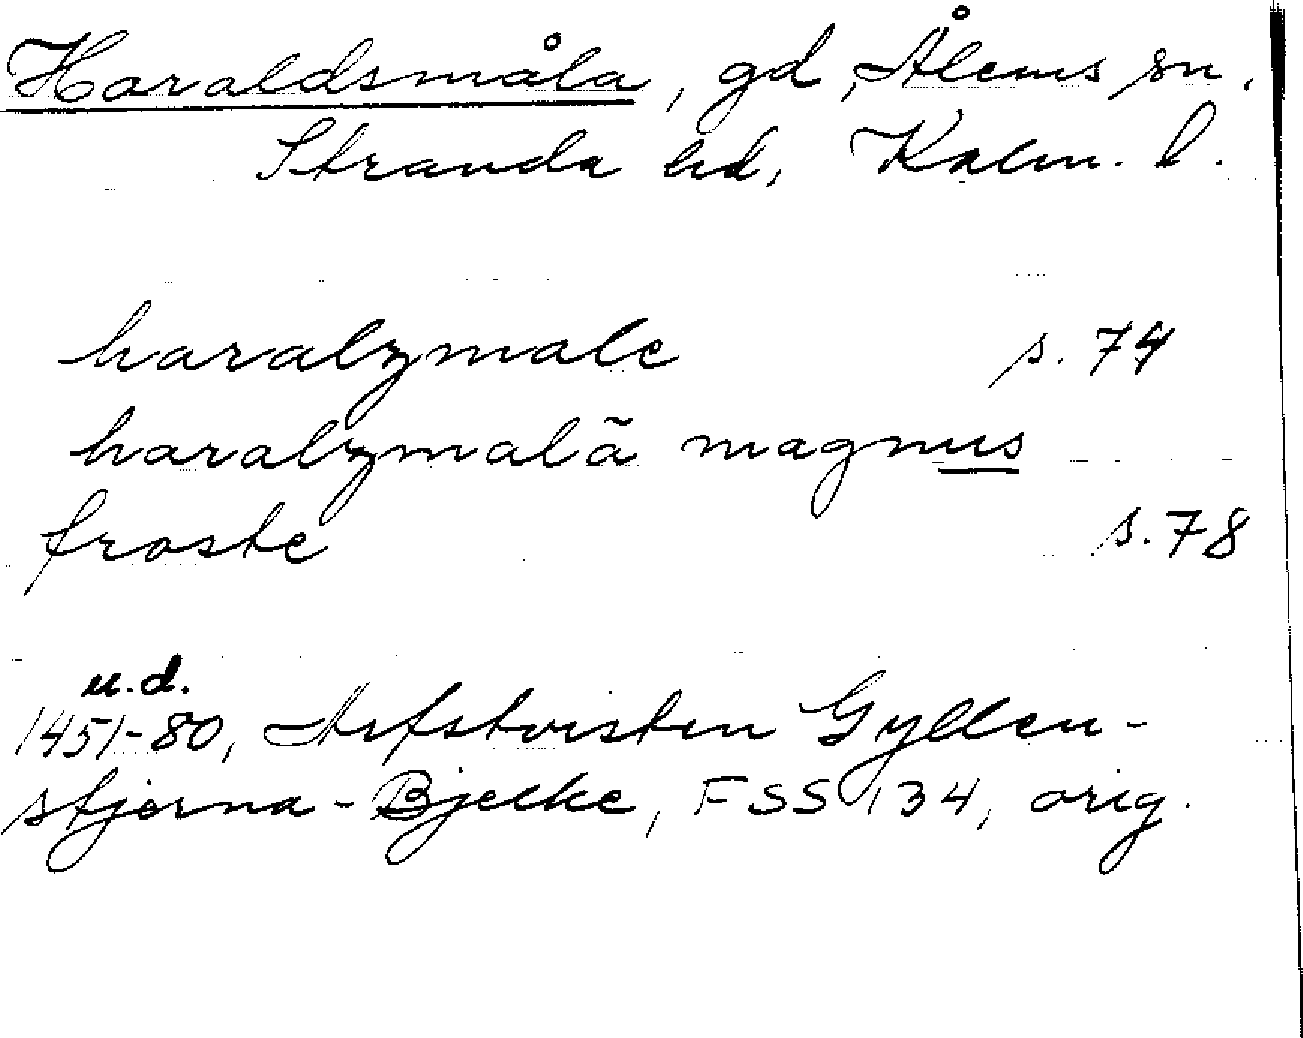 Haraldsmåla, gd, Ålems sn.
Stranda hd, Kalm. l.
haralzmale s. 74
haralzmalã magnus
froste s. 78
u.d.
1451-80, Arfstvisten Gyllen-
stjerna-Bjelke, FSS 134, orig.